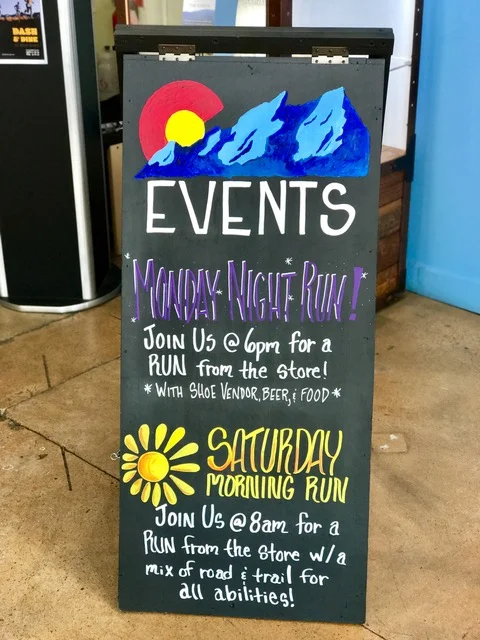 DASH
& DINE
EVENTS
MONDAY NIGHT RUN!
JOIN US @ 6pm for a
RUN from the store!
*WITH SHOE VENDOR, BEER, & FOOD*
SATURDAY
MORNING RUN
JOIN US @ 8am for a
RUN from the store w/a
mix of road & trail for
all abilities!